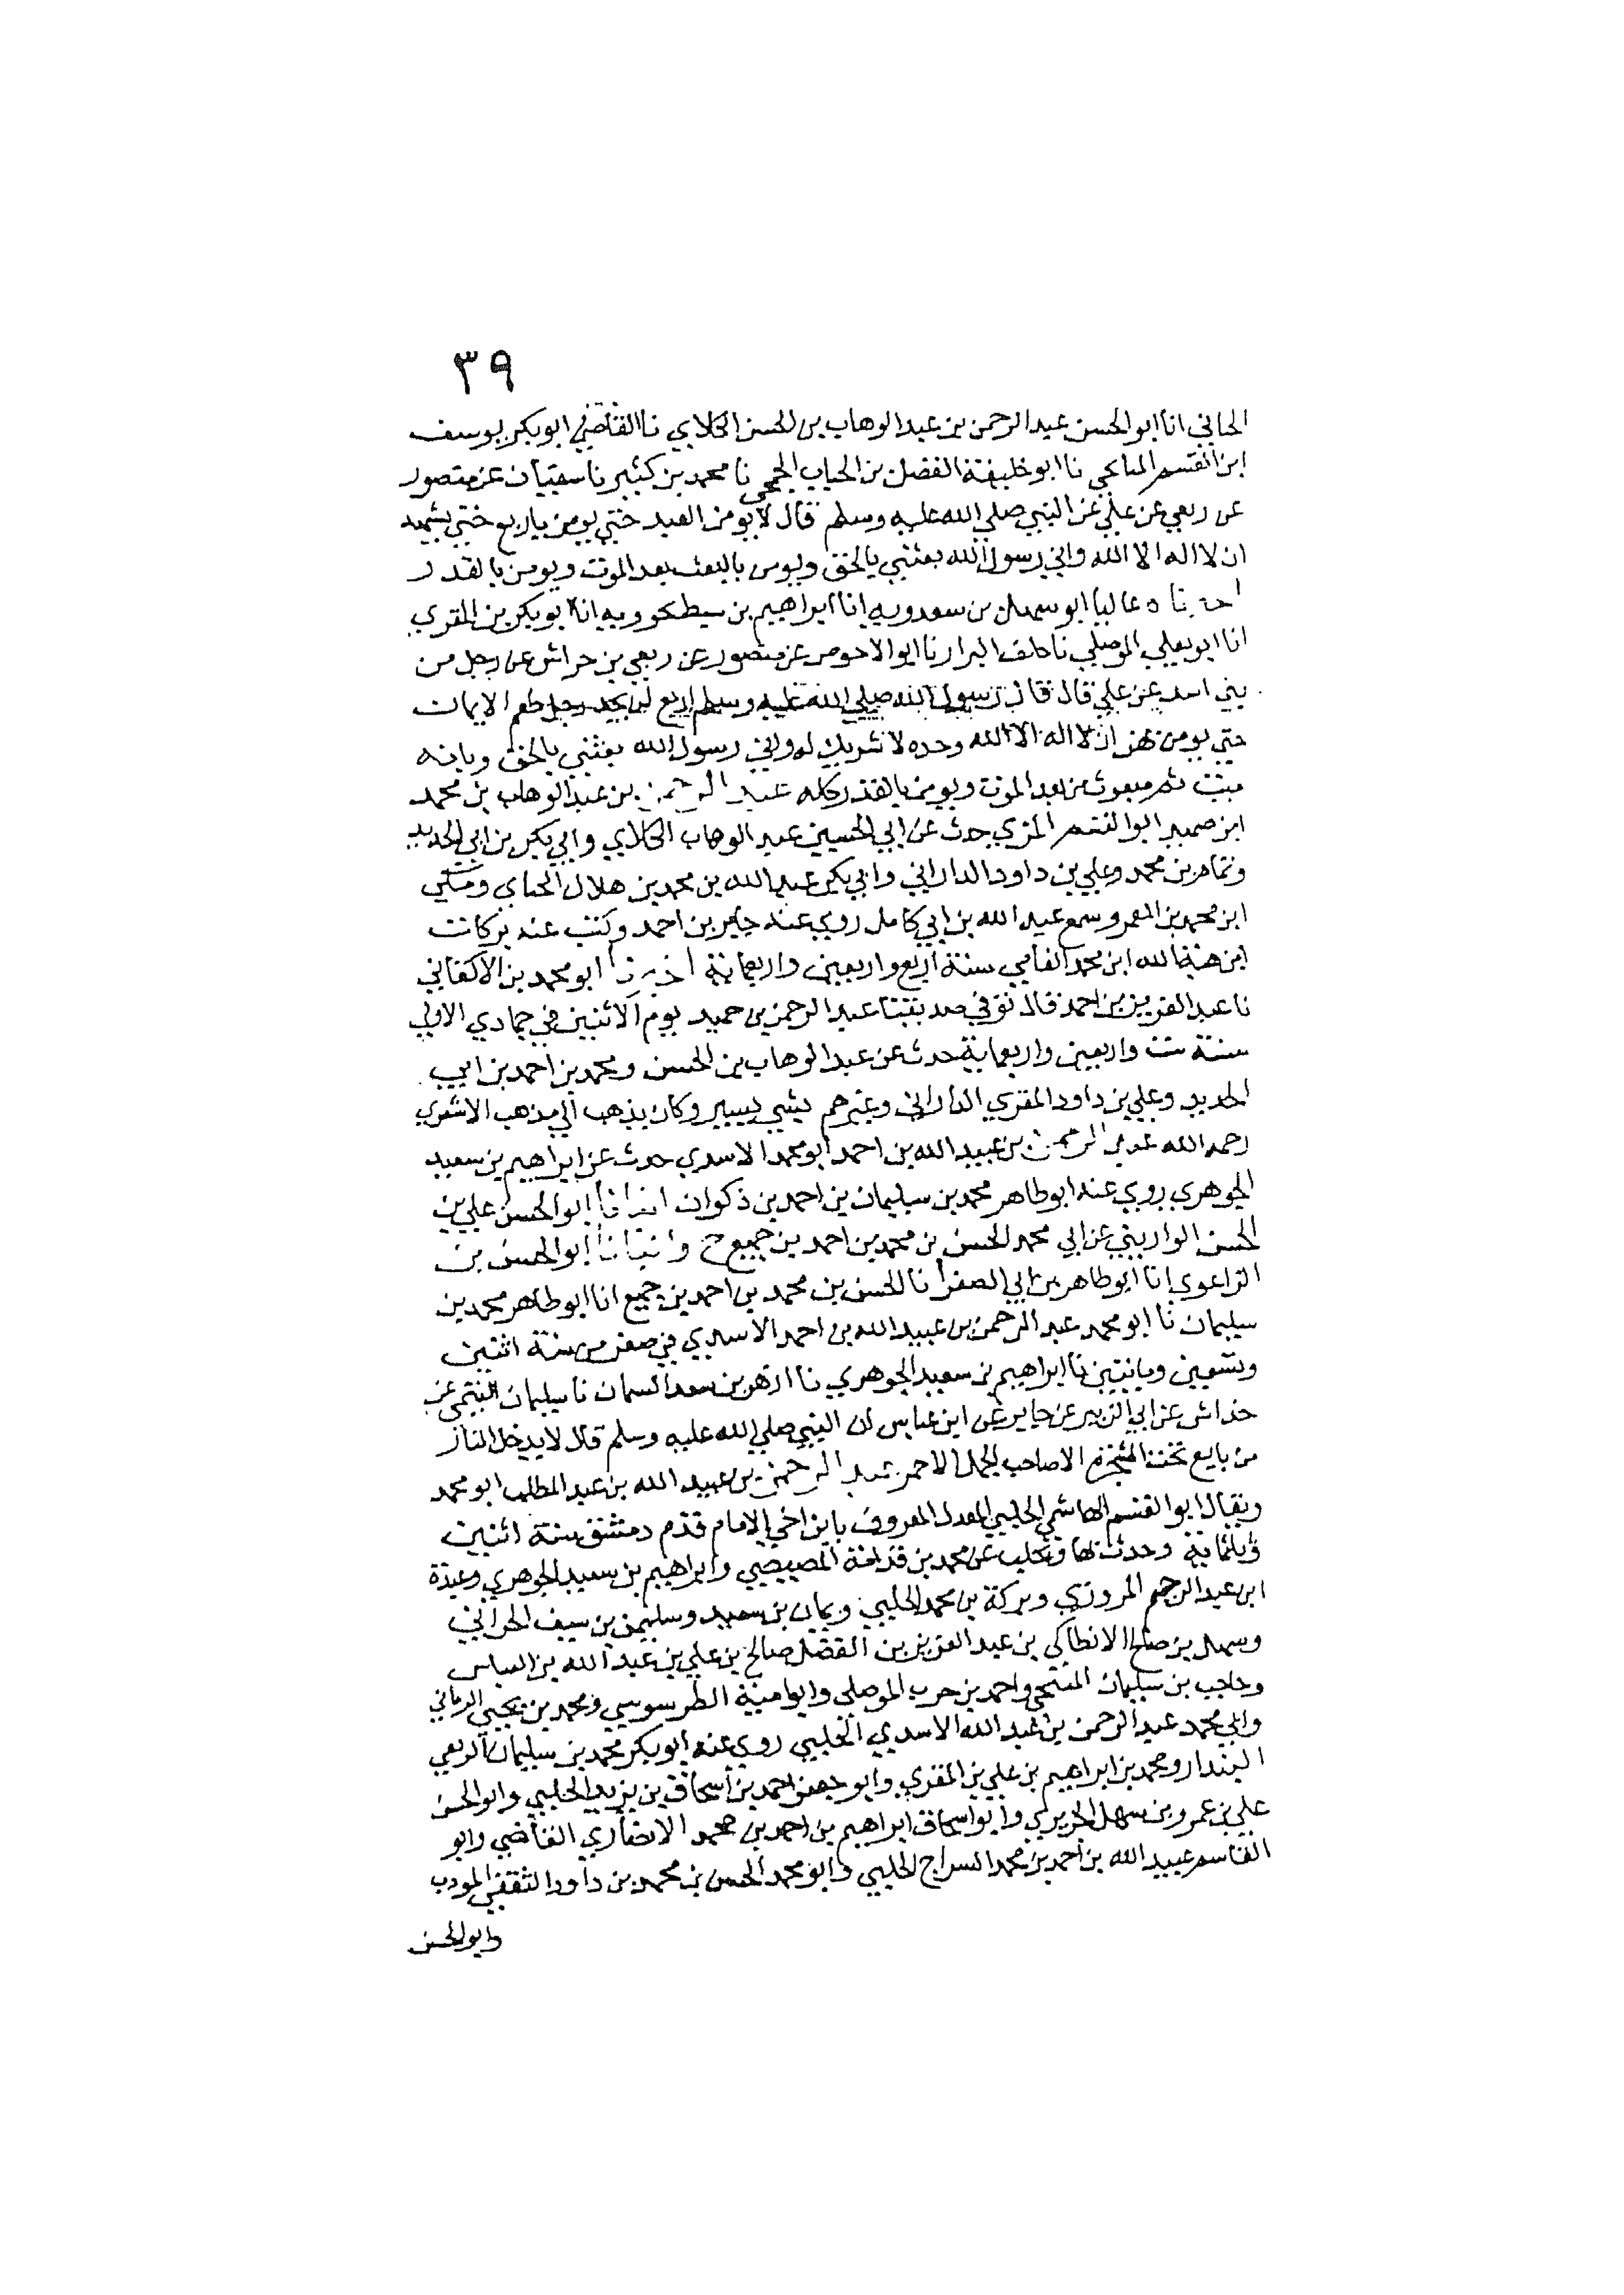 ٣٩
الحناني انا ابو الحسن عبد الرحمن بن عبد الوهاب بن الحسن الكلابي نا القاضي ابو بكر يوسف
ابن القسم الميانجي نا ابو خليفة الفضل بن الحباب الجمحي نا محمد بن كثير نا سفيان عن منصور
عن ربعي عن علي عن النبي صلي الله عليه وسلم قال لا يومن العبد حتي يومن باربع حتي يشهد
ان لا اله الا الله واني رسول الله بعثني بالحق ويومن بالبعث بعد الموت ويومن بالقدر
اخبرناه عاليا ابو سهل بن سعدويه انا ابراهيم بن سبط بحرويه انا ابو بكر بن المقري
انا ابو يعلي الموصلي نا خلف البزار نا ابو الاحوص عن منصور عن ربعي بن حراش عن رجل من
بني اسد عن علي قال قال رسول الله صلي الله عليه وسلم اربع لن يجد رجل طعم الايمان
حتي يومن بهن ان لا اله الا الله وحده لا شريك له واني رسول الله بعثني بالحق وبانه
ميت ثم مبعوث من بعد الموت ويومن بالقدر كله عبد الرحمن بن عبد الوهاب بن محمد
ابن حميد ابو القسم المزي حدث عن ابي الحسين عبد الوهاب الكلابي وابي بكر بن ابي الحديد
وتمام بن محمد وعلي بن داود الداراني وابي بكر عبد الله بن محمد بن هلال الحناي ومكي
ابن محمد بن الغمر وسمع عبد الله بن ابي كامل روي عنه جابر بن احمد وكتب عنه بركات
ابن هبة الله ابن محمد الفامي سنة اربع واربعين واربعماية اخبرنا ابو محمد بن الاكفاني
نا عبد العزيز بن احمد قال توفي صديقنا عبد الرحمن بن حميد يوم الاثنين في جمادي الاولي
سنة ست واربعين واربعماية حدث عن عبد الوهاب بن الحسن ومحمد بن احمد بن ابي
الحديد وعلي بن داود المقري الداراني وغيرهم بشي يسير وكان يذهب الي مذهب الاشعري
رحمه الله عبد الرحمن بن عبيد الله بن احمد ابو محمد الاسدي حدث عن ابراهيم بن سعيد
الجوهري روي عنه ابو طاهر محمد بن سليمان بن احمد بن ذكوان انبانا ابو الحسن علي بن
الحسن الوازيني عن ابي محمد الحسن بن محمد بن احمد بن جميع ح وانبانا ابو الحسن بن
الزاغوي انا ابو طاهر بن ابي الصقر انا الحسن بن محمد بن احمد بن جميع انا ابو طاهر محمد بن
سليمان نا ابو محمد عبد الرحمن بن عبيد الله بن احمد الاسدي في صفر من سنة اثنين
وتسعين وماتين نا ابراهيم بن سعيد الجوهري نا ازهر بن سعد السمان نا سليمان التيمي عن
خداش عن ابي الزبير عن جابر عن ابن عباس ان النبي صلي الله عليه وسلم قال لا يدخل النار
من بايع تحت الشجرة الا صاحب الجمل الاحمر عبد الرحمن بن عبيد الله بن عبد المطلب ابو محمد
ويقال ابو القسم الهاشمي الحلبي المعدل المعروف بابن اخي الامام قدم دمشق سنة اثنين
وثلثماية وحدث بها وبحلب عن محمد بن قدامة المصيصي وابراهيم بن سعيد الجوهري وعبدة
ابن عبد الرحيم المروزي وبركة بن محمد الحلبي ويمان بن سعيد وسليمن بن سيف الحراني
وسهل بن صالح الانطاكي بن عبد العزيز بن الفضل صالح بن علي بن عبد الله بن العباس
وحاجب بن سليمان المنبجي واحمد بن حرب الموصلي وابو امية الطرسوسي ومحمد بن يحيي الرماني
وابي محمد عبد الرحمن بن عبد الله الاسدي الحلبي روي عنه ابو بكر محمد بن سليمان الربعي
البندار ومحمد بن ابراهيم بن علي بن المقري وابو جعفر احمد بن اسحاق بن يزيد الحلبي وابو الحسن
علي بن عمرو بن سهل الحريري وابو اسحاق ابراهيم بن احمد بن محمد الانصاري القاضي وابو
القاسم عبيد الله بن احمد بن محمد السراج الحلبي وابو محمد الحسن بن محمد بن داود الثقفي المودب
وابو الحسن